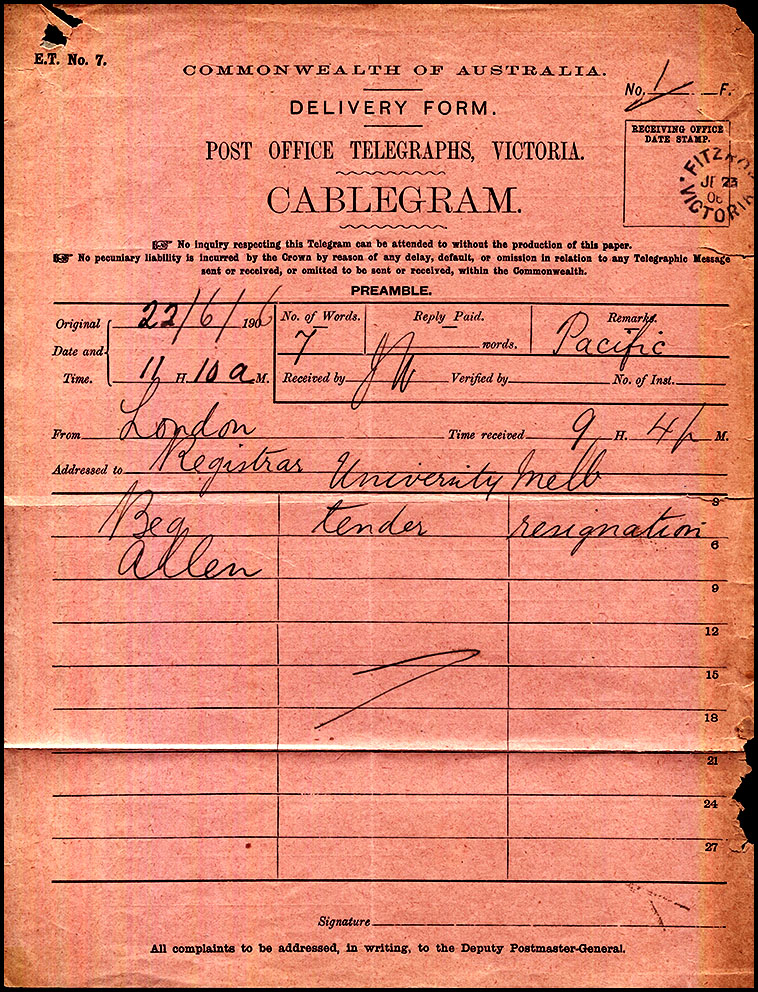 E.T. No. 7.
COMMONWEALTH OF AUSTRALIA.
No. 1 F.
DELIVERY FORM.
POST OFFICE TELEGRAPHS, VICTORIA.
CABLEGRAM.
RECEIVING OFFICE
DATE STAMP.
FITZRO
23
06
VICTORIA
☞ No inquiry respecting this Telegram can be attended to without the production of this paper.
☞ No pecuniary liability is incurred by the Crown by reason of any delay, default, or omission in relation to any Telegraphic Message
sent or received, or omitted to be sent or received, within the Commonwealth.
PREAMBLE.
Original 22/6/1906
Date and
Time. 11 H. 10 a M.
No. of Words. Reply Paid. Remarks.
7 words. Pacific
Received by JW Verified by No. of Inst.
From London Time received 9 H. 41 M.
Addressed to Registrar University Melb
3
Beg tender resignation
6
Allen
9
12
15
18
21
24
27
Signature
All complaints to be addressed, in writing, to the Deputy Postmaster-General.